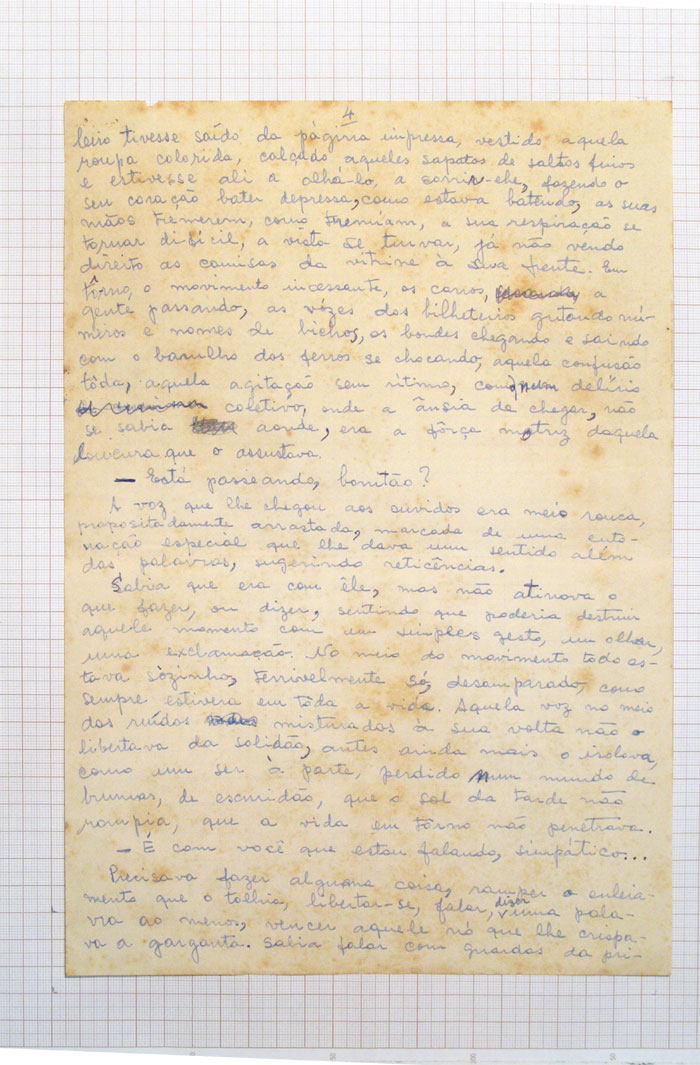 4
leiro tivesse saído da página impressa, vestido aquela
roupa colorida, calçado aqueles sapatos de saltos finos
e estivesse ali a olhá-lo, a sorrir-lhe, fazendo o
seu coração bater depressa, como estava batendo, as suas
mãos tremerem, como tremiam, a sua respiração se
tornar difícil, a vista se turvar, já não vendo
direito as camisas da vitrine à sua frente. Em
tôrno, o movimento incessante, os carros, a
gente passando, as vózes dos bilheteiros gritando nú-
meros e nomes de bichos, os bondes chegando e saindo
com o barulho dos ferros se chocando, aquela confusão
tôda, aquela agitação sem ritimo, como num delírio
coletivo, onde a ânsia de chegar, não
se sabia aonde, era a fôrça motriz daquela
loucura que o assustava.
— Está passeando, bonitão?
A voz que lhe chegou aos ouvidos era meio rouca,
propositadamente arrastada, marcada de uma ento-
nação especial que lhe dava um sentido além
das palavras, sugerindo reticências.
Sabia que era com êle, mas não atinava o
que fazer, ou dizer, sentindo que poderia destruir
aquele momento com um simples gesto, um olhar,
uma exclamação. No meio do movimento todo es-
tava sòzinho, terrivelmente só, desamparado, como
sempre estivera em tôda a vida. Aquela voz no meio
dos ruídos misturados à sua volta não o
libertava da solidão, antes ainda mais o isolava,
como um ser à parte, perdido num mundo de
brumas, de escuridão, que o sol da tarde não
rompia, que a vida em tôrno não penetrava.
— É com você que estou falando, simpático...
Precisava fazer alguma coisa, romper o enleia-
mento que o tolhia, libertar-se, falar, dizer uma pala-
vra ao menos, vencer aquele nó que lhe crispa-
va a garganta. Sabia falar com guardas da pri-